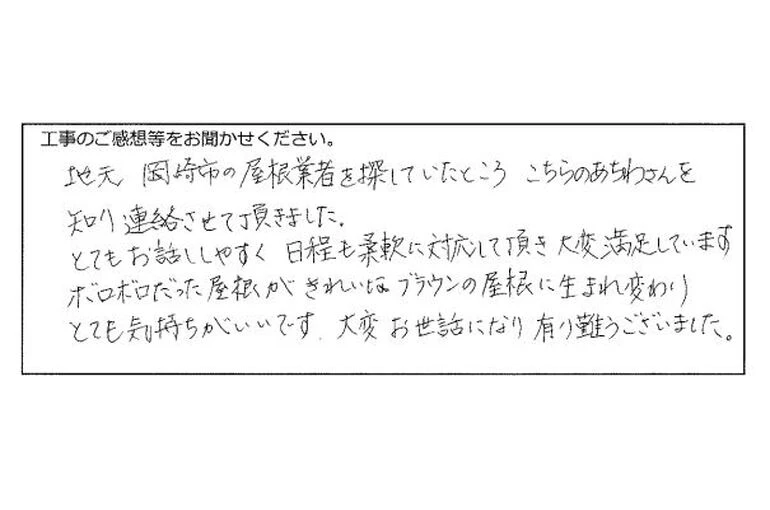 工事のご感想等をお聞かせください。
地元 岡崎市の屋根業者を探していたところ こちらのあちわさんを
知り連絡させて頂きました.
とてもお話ししやすく 日程も柔軟に対応して頂き 大変満足しています
ボロボロだった屋根が きれいなブラウンの屋根に生まれ変わり
とても気持ちがいいです. 大変 お世話になり 有り難うございました。